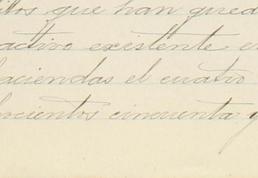 llos que han queda
activo existente en
haciendas el cuatro
ocientos cincuenta y